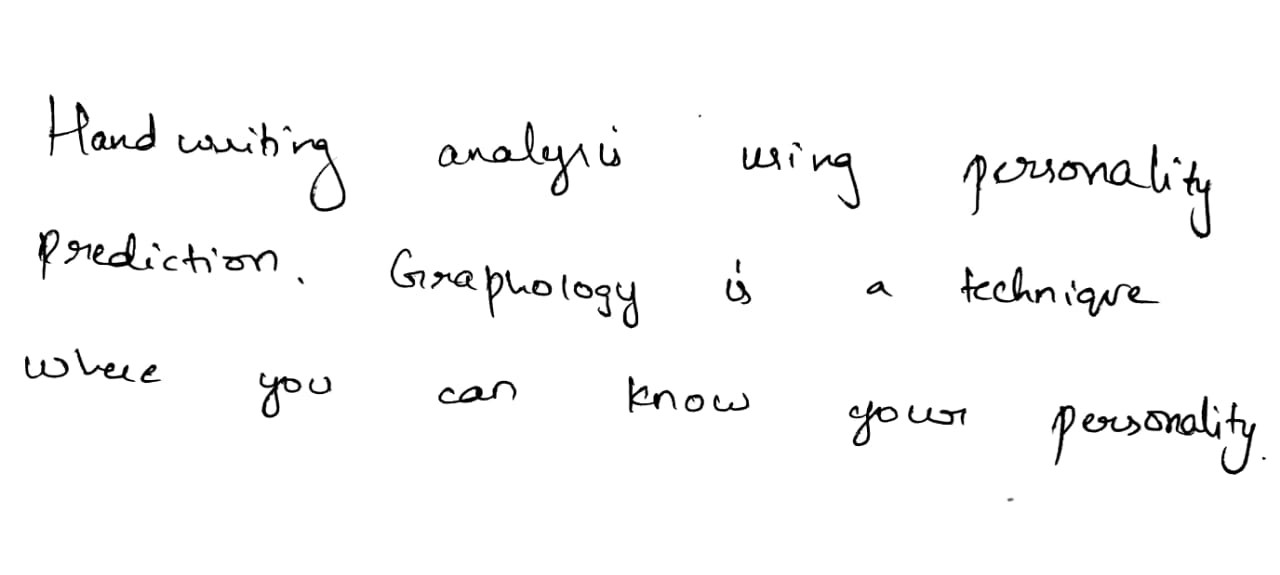 Hand writing analysis using personality
prediction. Graphology is a technique
where you can know your personality.